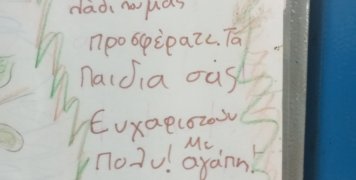 μας
προσφέρατε. Τα
παιδια σάς
Ευχαριστούν
Πολυ! Με αγάπη!